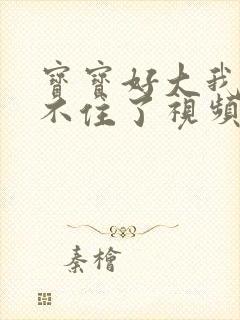 寶寶好大我
不住了視頻
秦檜